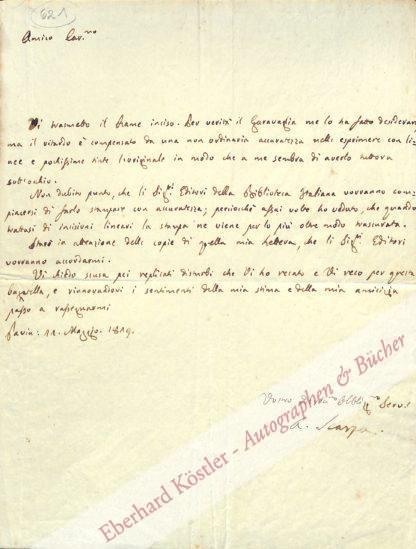 621
Amico Car.mo
Vi trasmetto il Rame inciso. Per verità il Garavaglia me lo ha fatto desiderare
ma il ritardo è compensato da una non ordinaria accuratezza nell' esprimere con li-
nee e pochissime tinte l'originale in modo che a me sembra di averlo tuttora
sott'occhio.
Non dubito punto, che li Sig.ri Editori della Biblioteca Italiana vorranno com-
piacersi di farlo stampare con accuratezza; perciocchè assai volte ho veduto, che quando
trattasi di incisioni lineari la stampa ne viene per lo più oltre modo trascurata.
Starò in attenzione delle copie di quella mia lettera, che li Sig.ri Editori
vorranno accordarmi.
Vi chiedo scusa pei replicati disturbi che Vi ho recato e Vi reco per questa
bagatella, e rinnovandovi i sentimenti della mia stima e della mia amicizia
passo a rassegnarmi
Pavia: 11. Maggio. 1819.
Vostro Obbl. Serv.e
A. Scarpa.
Eberhard Köstler - Autographen & Bücher